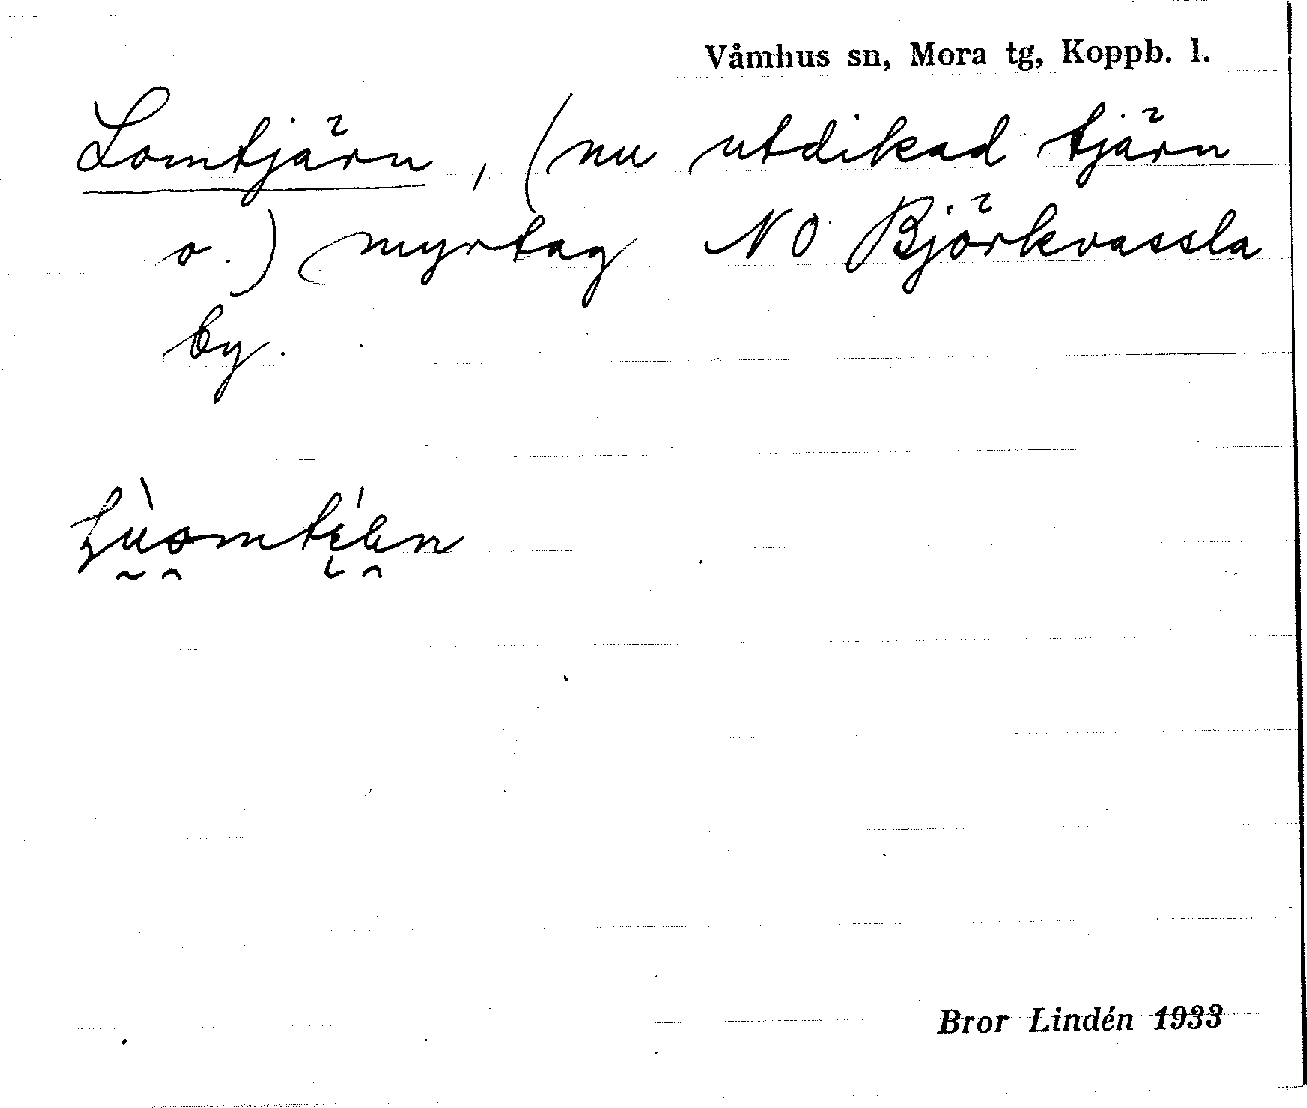 Våmhus sn, Mora tg, Koppb. l.
Lomtjärn, (nu utdikad tjärn
o.) myrtag NO Björkvassla
by.
Bror Lindén 1933